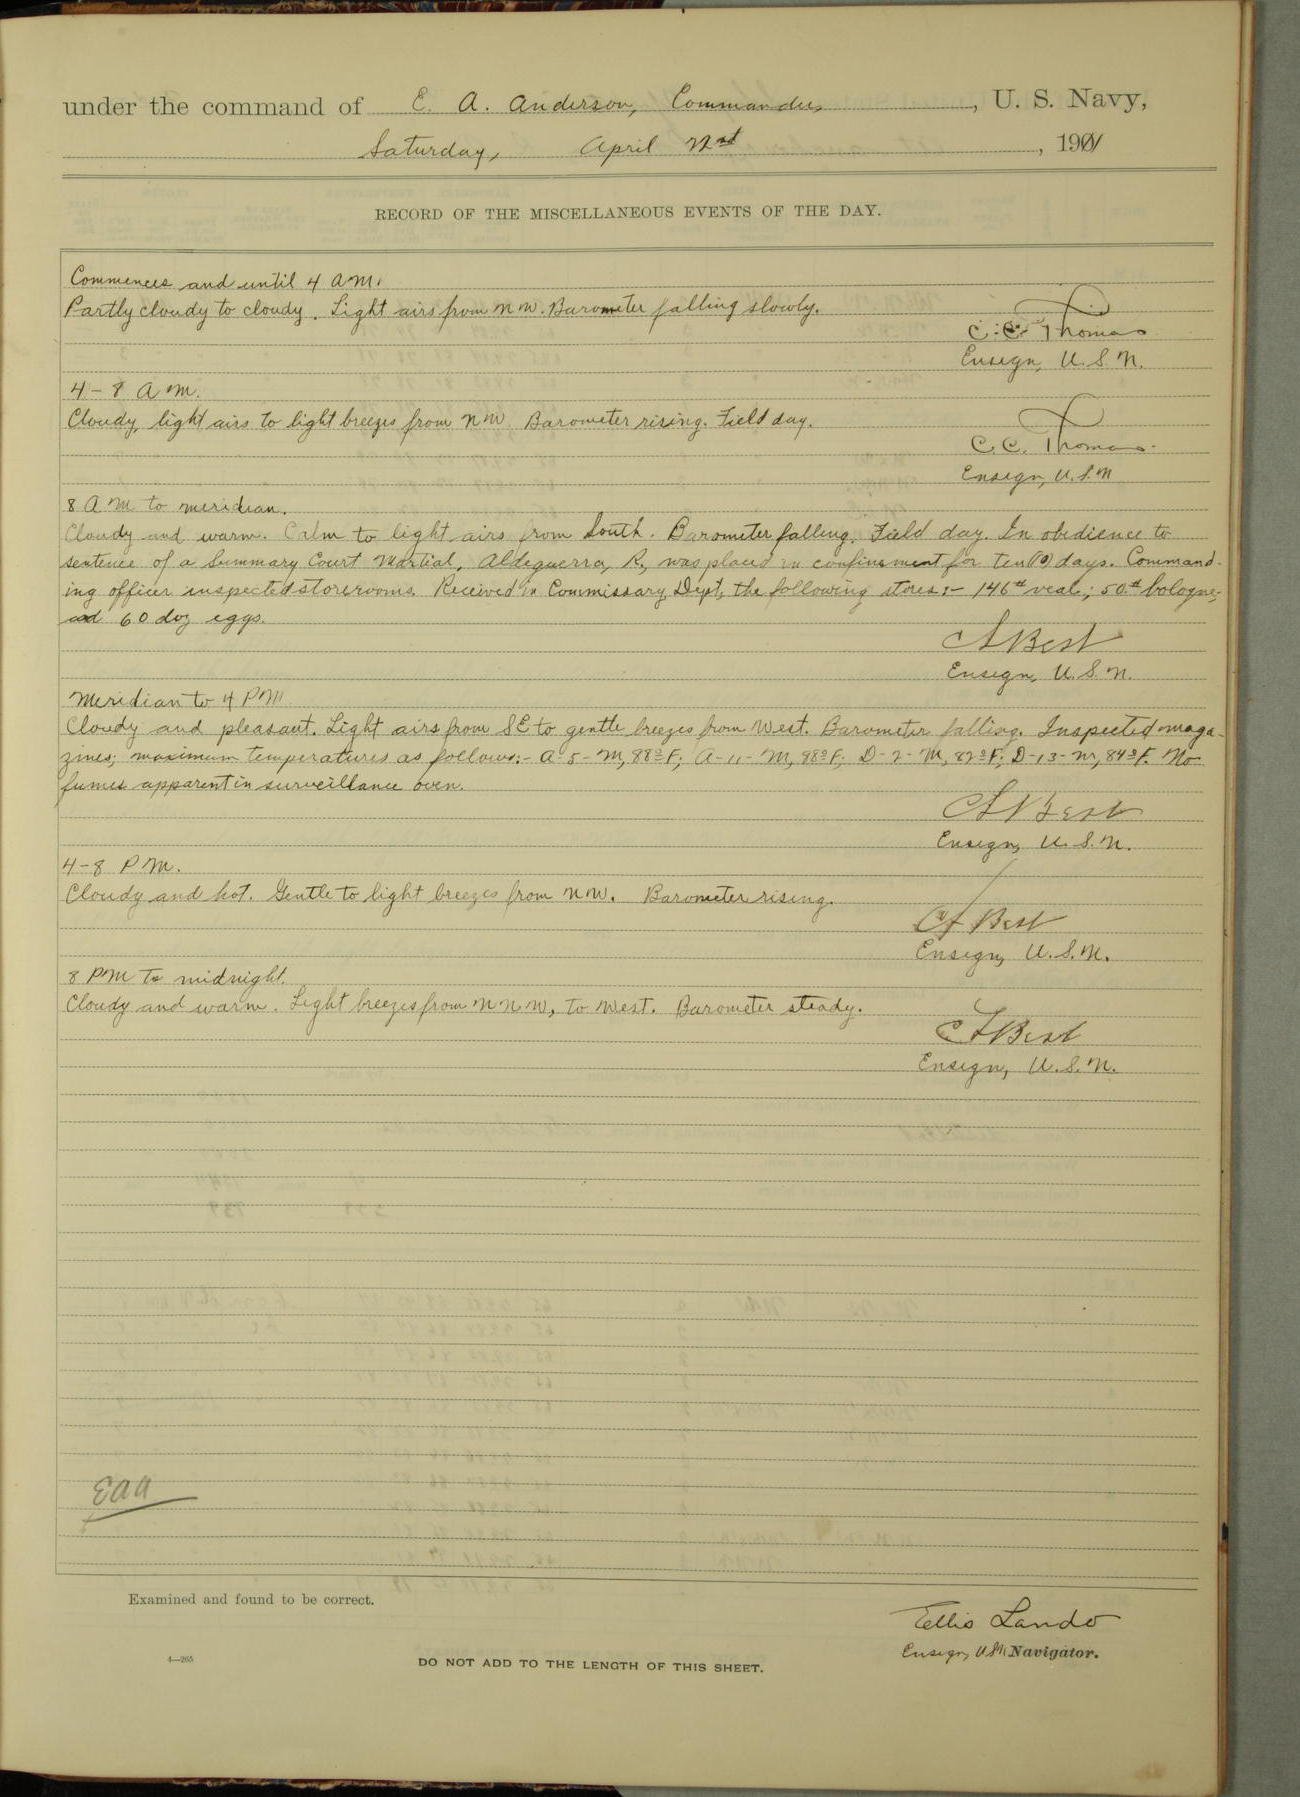 under the command of E. A. Anderson, Commander, U. S. Navy,
Saturday, April 22nd, 1911
RECORD OF THE MISCELLANEOUS EVENTS OF THE DAY.
Commences and until 4 AM.
Partly cloudy to cloudy. Light airs from NW. Barometer falling slowly.
C. C. Thomas
Ensign, U. S. N.
4 - 8 AM.
Cloudy, light airs to light breezes from NW Barometer rising. Field day.
C. C. Thomas
Ensign, U.S.N
8 AM to meridian.
Cloudy and warm. Calm to light airs from South. Barometer falling. Field day. In obedience to
sentence of a Summary Court Martial, Aldeguerra, R., was placed in confinement for ten (10) days. Command-
ing officer inspected storerooms. Received in Commissary Dept, the following stores:- 146# veal; 50# bologne;
and 60 doz eggs.
Best
Ensign, U. S. N.
Meridian to 4 PM
Cloudy and pleasant. Light airs from SE to gentle breezes from West. Barometer falling. Inspected maga-
zines; maximum temperatures as follows:- A-5-M, 88°F; A-11-M, 98°F; D-2-M, 82°F; D-13-M, 84°F. No
fumes apparent in surveillance oven.
Best
Ensign, U. S. N.
4-8 PM.
Cloudy and hot. Gentle to light breezes from NW. Barometer rising.
CF Best
Ensign, U.S.N.
8 PM to midnight.
Cloudy and warm. Light breezes from NNW, to West. Barometer steady.
CF Best
Ensign, U. S. N.
EAA
Examined and found to be correct.
Ellis Lando
Ensign, USN Navigator.
4—265
DO NOT ADD TO THE LENGTH OF THIS SHEET.